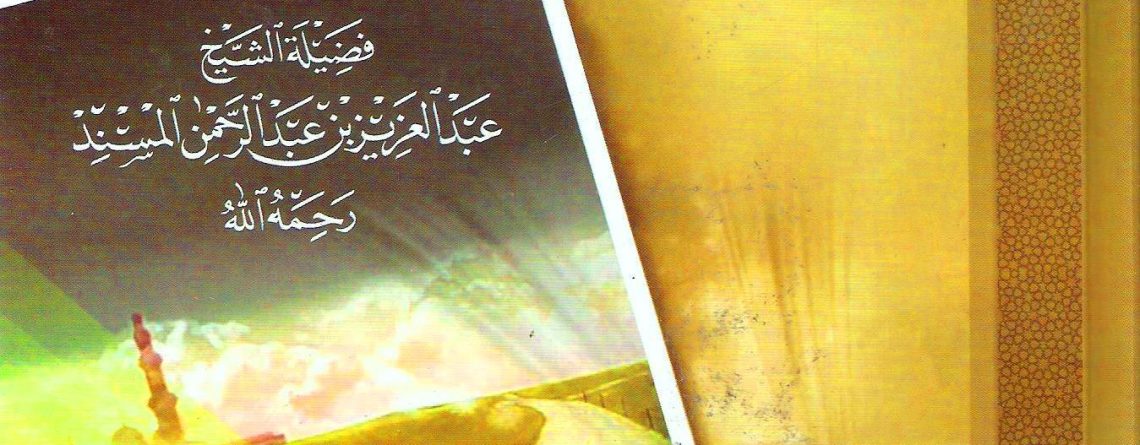 فَضِيْلَة الشَّيْخ
عَبْدُ الْعَزِيْزِ بْنُ عَبْدِ الرَّحْمٰنِ الْمُسْنِدُ
رَحِمَهُ اللهُ